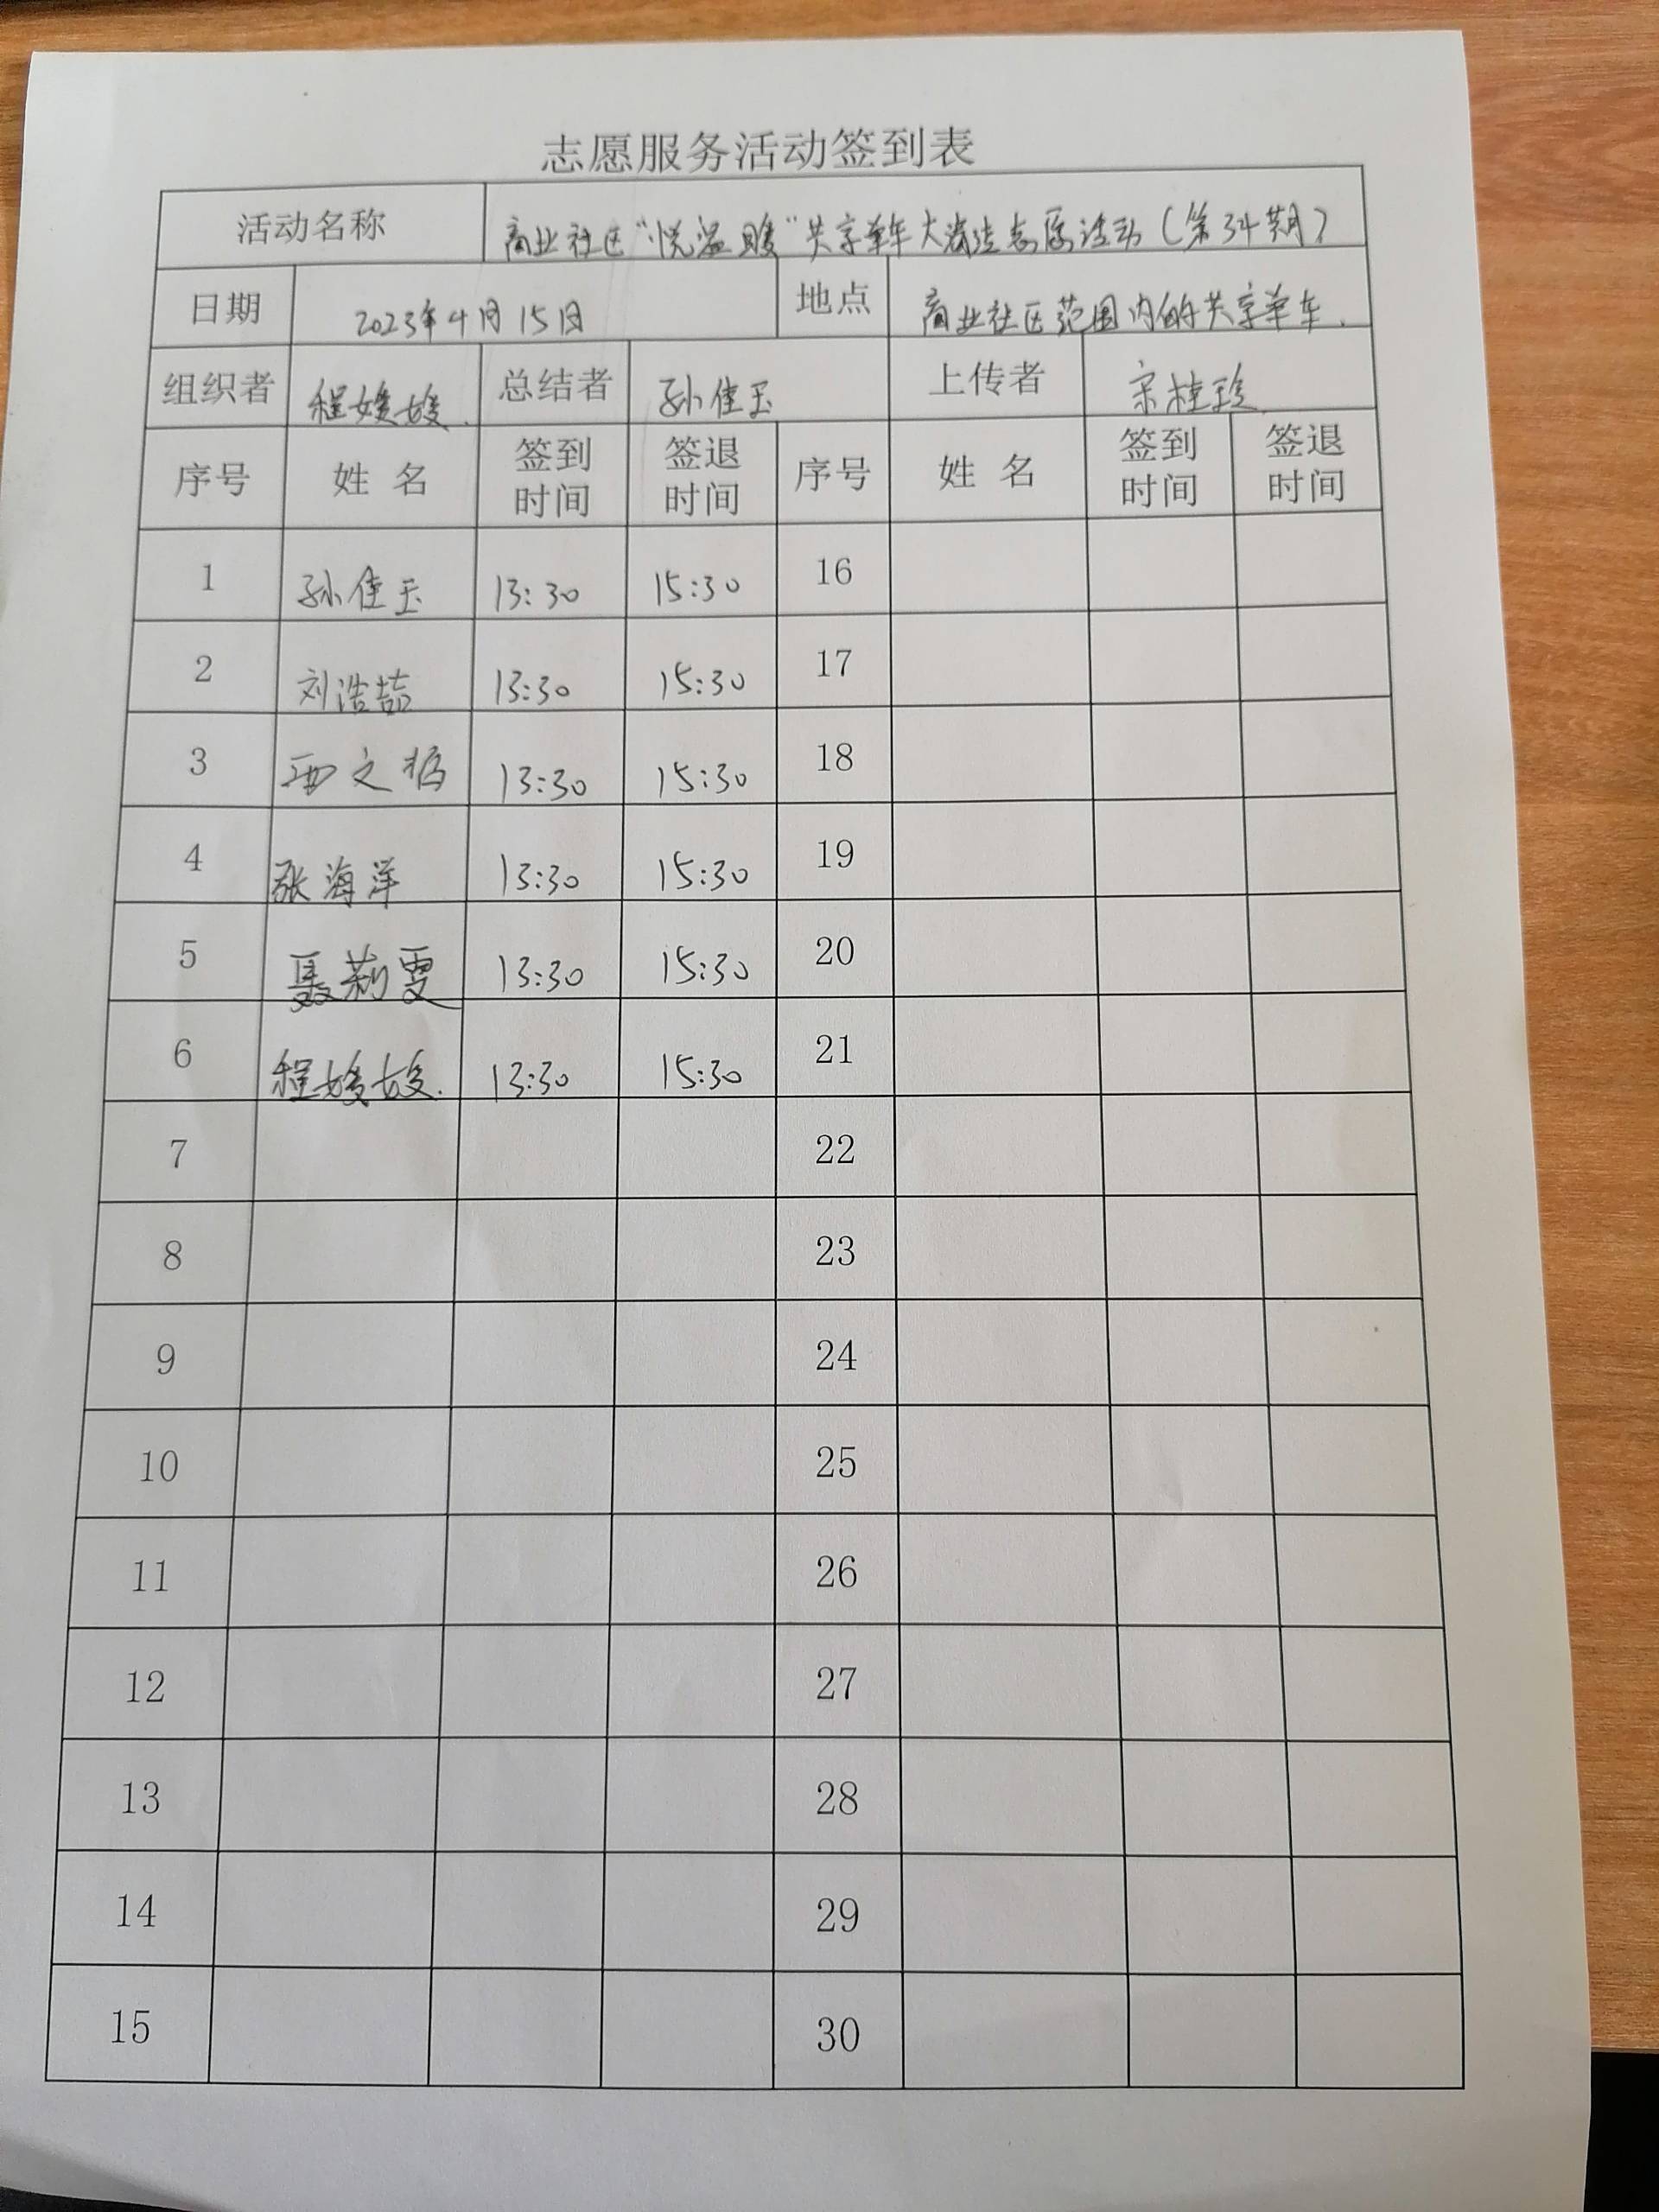 志愿服务活动签到表
活动名称 商业社区“悦温暖”共享单车大清洁志愿活动(第34期)
日期 2023年4月15日 地点 商业社区范围内的共享单车.
组织者 程媛媛. 总结者 孙佳玉 上传者 宋桂珍
序号 姓名 签到时间 签退时间 序号 姓名 签到时间 签退时间
1 孙佳玉 13:30 15:30 16
2 刘浩喆 13:30 15:30 17
3 13:30 15:30 18
4 张海洋 13:30 15:30 19
5 聂莉雯 13:30 15:30 20
6 程媛媛. 13:30 15:30 21
7 22
8 23
9 24
10 25
11 26
12 27
13 28
14 29
15 30